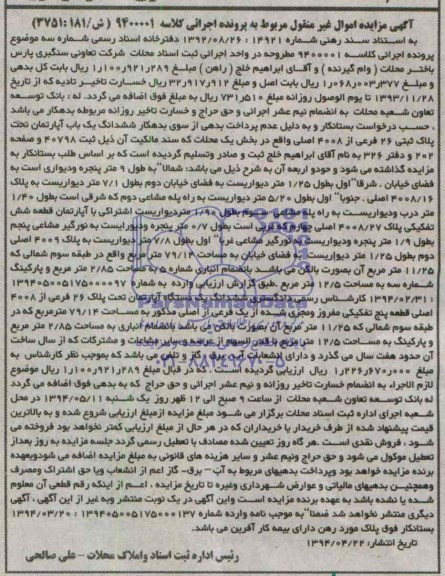 آگهی مزایده اموال غیر منقول مربوط به پرونده اجرائی کلاسه ۹۴۰۰۰۰۱ (ش/۱۸۱: ۳۷۵۱)
به استناد سند رهنی شماره ۱۴۹۲۱ : ۱۳۹۲/۰۸/۲۶ دفترخانه اسناد رسمی شماره سه موضوع
پرونده اجرائی کلاسه ۹۴۰۰۰۰۱ مطروحه در واحد اجرائی ثبت اسناد محلات شرکت تعاونی سنگبری پارس
باختر محلات ( وام گیرنده ) و آقای ابراهیم خلج ( راهن ) مبلغ ۲۸۹ر۹۲۱ر۱۰۰ر۱ ریال بابت کل بدهی
و مبلغ ۳۷۷ر۰۰۳ر۰۶۸ر۱ ریال بابت اصل و مبلغ ۹۱۲ر۹۱۷ر۳۲ ریال خسارت تاخیر تادیه که از تاریخ
۱۳۹۳/۱۱/۲۸ تا یوم الوصول روزانه مبلغ ۵۱۰ر۷۳۱ ریال به مبلغ فوق اضافه می گردد. له : بانک توسعه
تعاون شعبه محلات به انضمام نیم عشر اجرائی و حق حراج و خسارت تاخیر روزانه مربوطه بدهکار می باشد
. حسب درخواست بستانکار و به دلیل عدم پرداخت بدهی از سوی بدهکار ششدانگ یک باب آپارتمان تحت
پلاک ثبتی ۲۶ فرعی از ۴۰۰۸ اصلی واقع در بخش یک محلات که سند مالکیت آن ذیل ثبت ۴۰۷۹۸ و صفحه
۲۰۲ و دفتر ۳۲۶ به نام آقای ابراهیم خلج ثبت و صادر وتسلیم گردیده است که بر اساس طلب بستانکار به
مزایده گذاشته می شود و حدود اربعه آن به شرح ذیل می باشد: شمالاً به طول ۹ متر پنجره ودیواری است به
فضای خیابان . شرقاً اول بطول ۱/۲۵ متر دیواریست به فضای خیابان دوم بطول ۷/۱ متر دیواریست به پلاک
۴۰۰۸/۱۶ اصلی . جنوباً اول بطول ۵/۲۰ متر دیواریست به راه پله مشاعی دوم که شرقی است بطول ۱/۴۰
متر درب ودیواریست به راه پله سوم بطول ۱/۹۰ متردیواریست اشتراکی با آپارتمان قطعه شش
تفکیکی پلاک ۴۰۰۸/۲۷ اصلی چهارم که غربی است بطول ۰/۷ متر پنجره ودیواریست به نورگیر مشاعی پنجم
بطول ۱/۹ متر پنجره ودیواریست به نورگیر مشاعی غرباً اول بطول ۷/۸ متر دیواریست به پلاک ۴۰۰۹ اصلی
دوم بطول ۱/۲۵ متر دیواریست به فضای خیابان به مساحت ۷۹/۱۴ متر مربع واقع در طبقه سوم شمالی که
۱۱/۲۵ متر مربع آن بصورت بالکن می باشد بانضمام انباری شماره ۵ به مساحت ۲/۸۵ متر مربع و پارکینگ
شماره سه به مساحت ۱۲/۵ متر مربع .طبق گزارش ارزیابی وارده به شماره ۱۳۹۴۰۵۰۰۵۱۷۵۰۰۰۰۹۷
۱۳۹۴/۰۲/۳۱ کارشناس رسمی دادگستری ششدانگ یک باب آپارتمان تحت پلاک ۲۶ فرعی از ۴۰۰۸
اصلی قطعه پنج تفکیکی مفروز ومجزی شده از یک فرعی از اصلی مذکور به مساحت ۷۹/۱۴ مترمربع که در
طبقه سوم شمالی که ۱۱/۲۵ متر مربع آن بصورت بالکن می باشد بانضمام انباری به مساحت ۲/۸۵ متر مربع
و پارکینگ به مساحت ۱۲/۵ متر مربع با قدر السهم از عرصه و سایر مشاعات و مشترکات که از سال ساخت
آن حدود هفت سال می گذرد و دارای انشعابات آب، برق، گاز و تلفن می باشد که بموجب نظر کارشناس به
مبلغ ۰۰۰ر۶۷۰ر۲۲۶ر۱ ریال ارزیابی گردیده است که در قبال مبلغ ۲۸۹ر۹۲۱ر۱۰۰ر۱ ریال موضوع
لازم الاجراء به انضمام خسارت تاخیر روزانه و نیم عشر اجرائی و حق حراج که به بدهی فوق اضافه می گردد
له بانک توسعه تعاون شعبه محلات از ساعت ۹ صبح الی ۱۲ ظهر روز یک شنبه ۱۳۹۴/۰۵/۱۱ در محل
شعبه اجرای اداره ثبت اسناد محلات برگزار می شود مبلغ مزایده ازمبلغ ارزیابی شروع شده و به بالاترین
قیمت پیشنهاد شده از طرف خریدار یا خریداران که در هر حال از مبلغ ارزیابی کمتر نخواهد بود فروخته می
شود ، فروش نقدی است .هر گاه روز تعیین شده مصادف با تعطیل رسمی گردد جلسه مزایده به روز بعداز
تعطیل موکول می شود و حق حراج ونیم عشر و سایر هزینه های قانونی به مبلغ مزایده اضافه می شودوبعهده
برنده مزایده خواهد بود وپرداخت بدهیهای مربوط به آب – برق – گاز اعم از انشعاب ویا حق اشتراک ومصرف
وهمچنین بدهیهای مالیاتی و عوارض شهرداری وغیره تا تاریخ مزایده ، اعم از اینکه رقم قطعی آن معلوم
شده یا نشده باشد به عهده برنده مزایده است واین آگهی در یک نوبت منتشر وبه غیر از این آگهی ، آگهی
دیگری منتشر نخواهد شد ضمناً به موجب نامه وارده شماره ۱۳۹۴۰۵۰۰۵۱۷۵۰۰۰۱۳۷ : ۱۳۹۴/۰۳/۲۰
بستانکار فوق پلاک مورد رهن دارای بیمه کار آفرین می باشد.
تاریخ انتشار: ۱۳۹۴/۰۴/۲۲
رئیس اداره ثبت اسناد واملاک محلات – علی صالحی